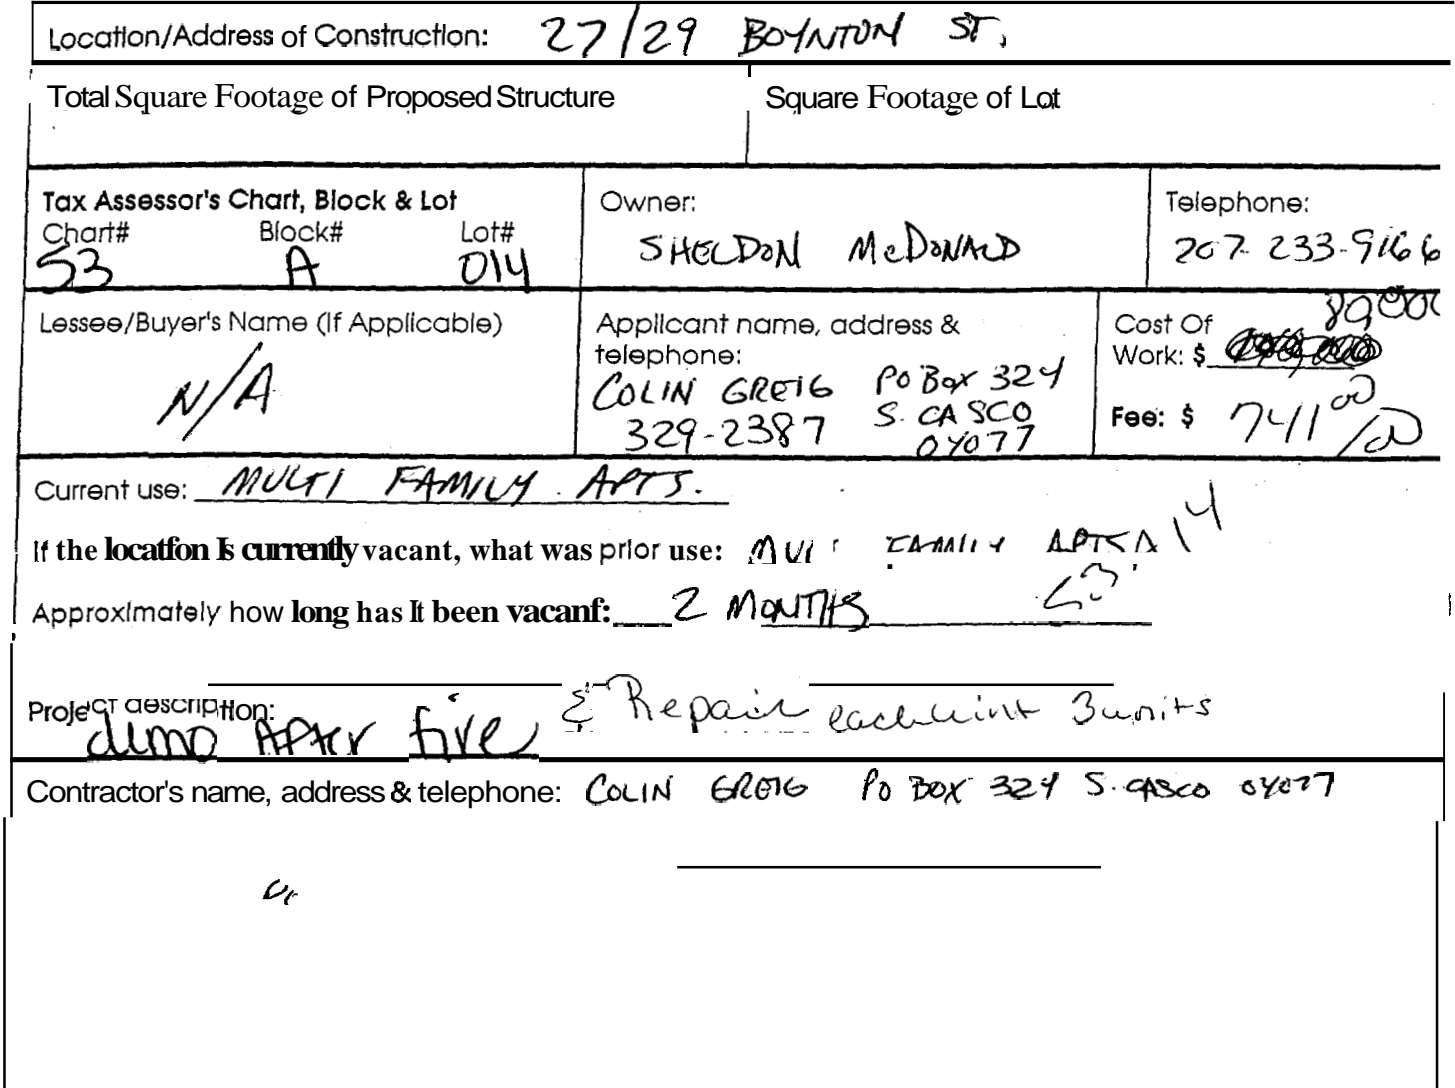 Location/Address of Construction: 27/29 BOYNTON ST.
Total Square Footage of Proposed Structure Square Footage of Lot
Tax Assessor's Chart, Block & Lot
Chart# Block# Lot#
53 A 014
Owner:
SHELDON McDONALD
Telephone:
207-233-9166
Lessee/Buyer's Name (If Applicable)
N/A
Applicant name, address &
telephone:
COLIN GREIG PO Box 324
329-2387 S. CASCO
04077
89000
Cost Of
Work: $
Fee: $ 741 00
Current use: MULTI FAMILY APTS.
If the locatfon Is currently vacant, what was prior use: FAMILY 14
Approximately how long has It been vacanf: 2 MONTHS
Project description:
demo After fire & Repair 3 units
Contractor's name, address & telephone: COLIN GREIG PO BOX 324 S. CASCO 04077